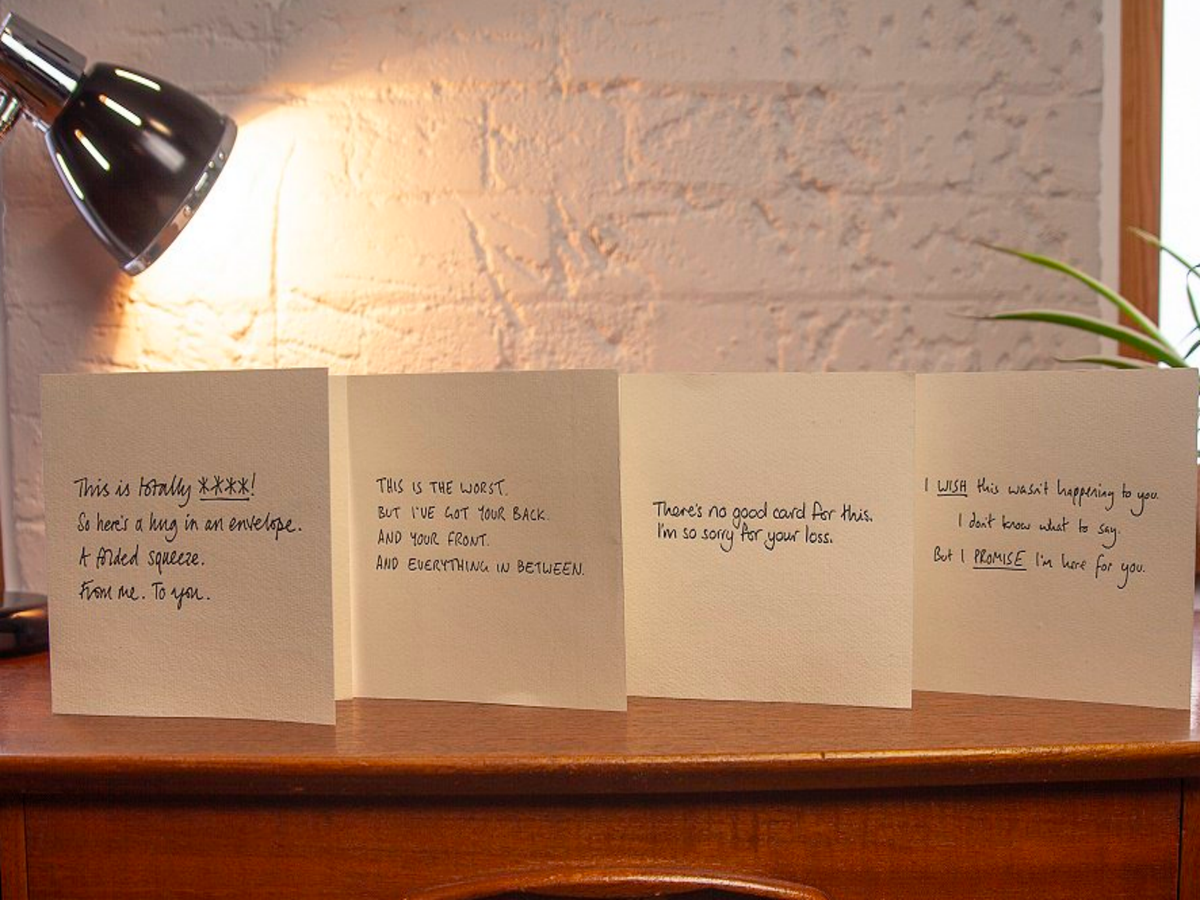 This is totally ****!
So here's a hug in an envelope.
A folded squeeze.
From me. To you.
THIS IS THE WORST.
BUT I'VE GOT YOUR BACK.
AND YOUR FRONT.
AND EVERYTHING IN BETWEEN.
There's no good card for this.
I'm so sorry for your loss.
I WISH this wasn't happening to you.
I don't know what to say.
But I PROMISE I'm here for you.